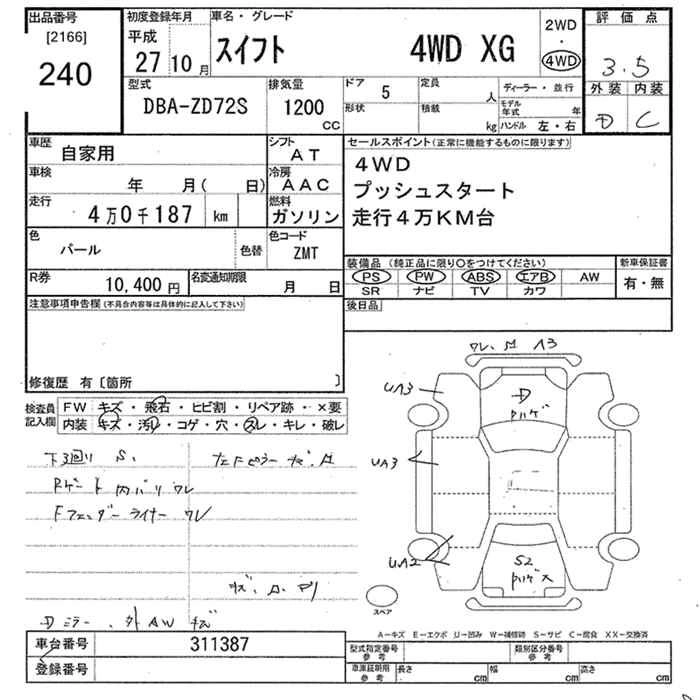 出品番号 初度登録年月 車名・グレード 2WD 評価点
[2166] 平成 スイフト 4WD XG ・ 3.5
240 27 10月 4WD 外装 内装
型式 排気量 ドア 5 定員 人 ディーラー・並行 D C
DBA-ZD72S 1200 CC 形状 積載 kg モデル年式 年
ハンドル 左・右
車歴 自家用 シフト AT セールスポイント(正常に機能するものに限ります)
車検 年 月( 日) 冷房 AAC 4WD
走行 4万0千187 km 燃料 ガソリン プッシュスタート
走行4万KM台
色 パール 色替 色コード ZMT
装備品(純正品に限り○をつけてください) 新車保証書
R券 10,400円 名変通知期限 月 日 PS PW ABS エアB AW 有・無
SR ナビ TV カワ
注意事項申告欄(不具合内容等は具体的に記入して下さい) 後日品
修復歴 有〔箇所 〕
ワレ、 A3
検査員記入欄 FW キズ・飛石・ヒビ割・リペア跡・×要
内装 キズ・汚レ・コゲ・穴・スレ・キレ・破レ
UA3
D
ハゲ
下廻り S、
UA3
Rゲート内バリ ワレ
Fフェンダーライナー ワレ
UA2
S2
ハゲ
スペア
Dミラー、外AW キズ
A−キズ E−エクボ U−凹み W−補修跡 S−サビ C−腐食 XX−交換済
車台番号 311387 型式指定番号 参考 類別区分番号 参考
登録番号 車庫証明用 参考 長さ cm 幅 cm 高さ cm